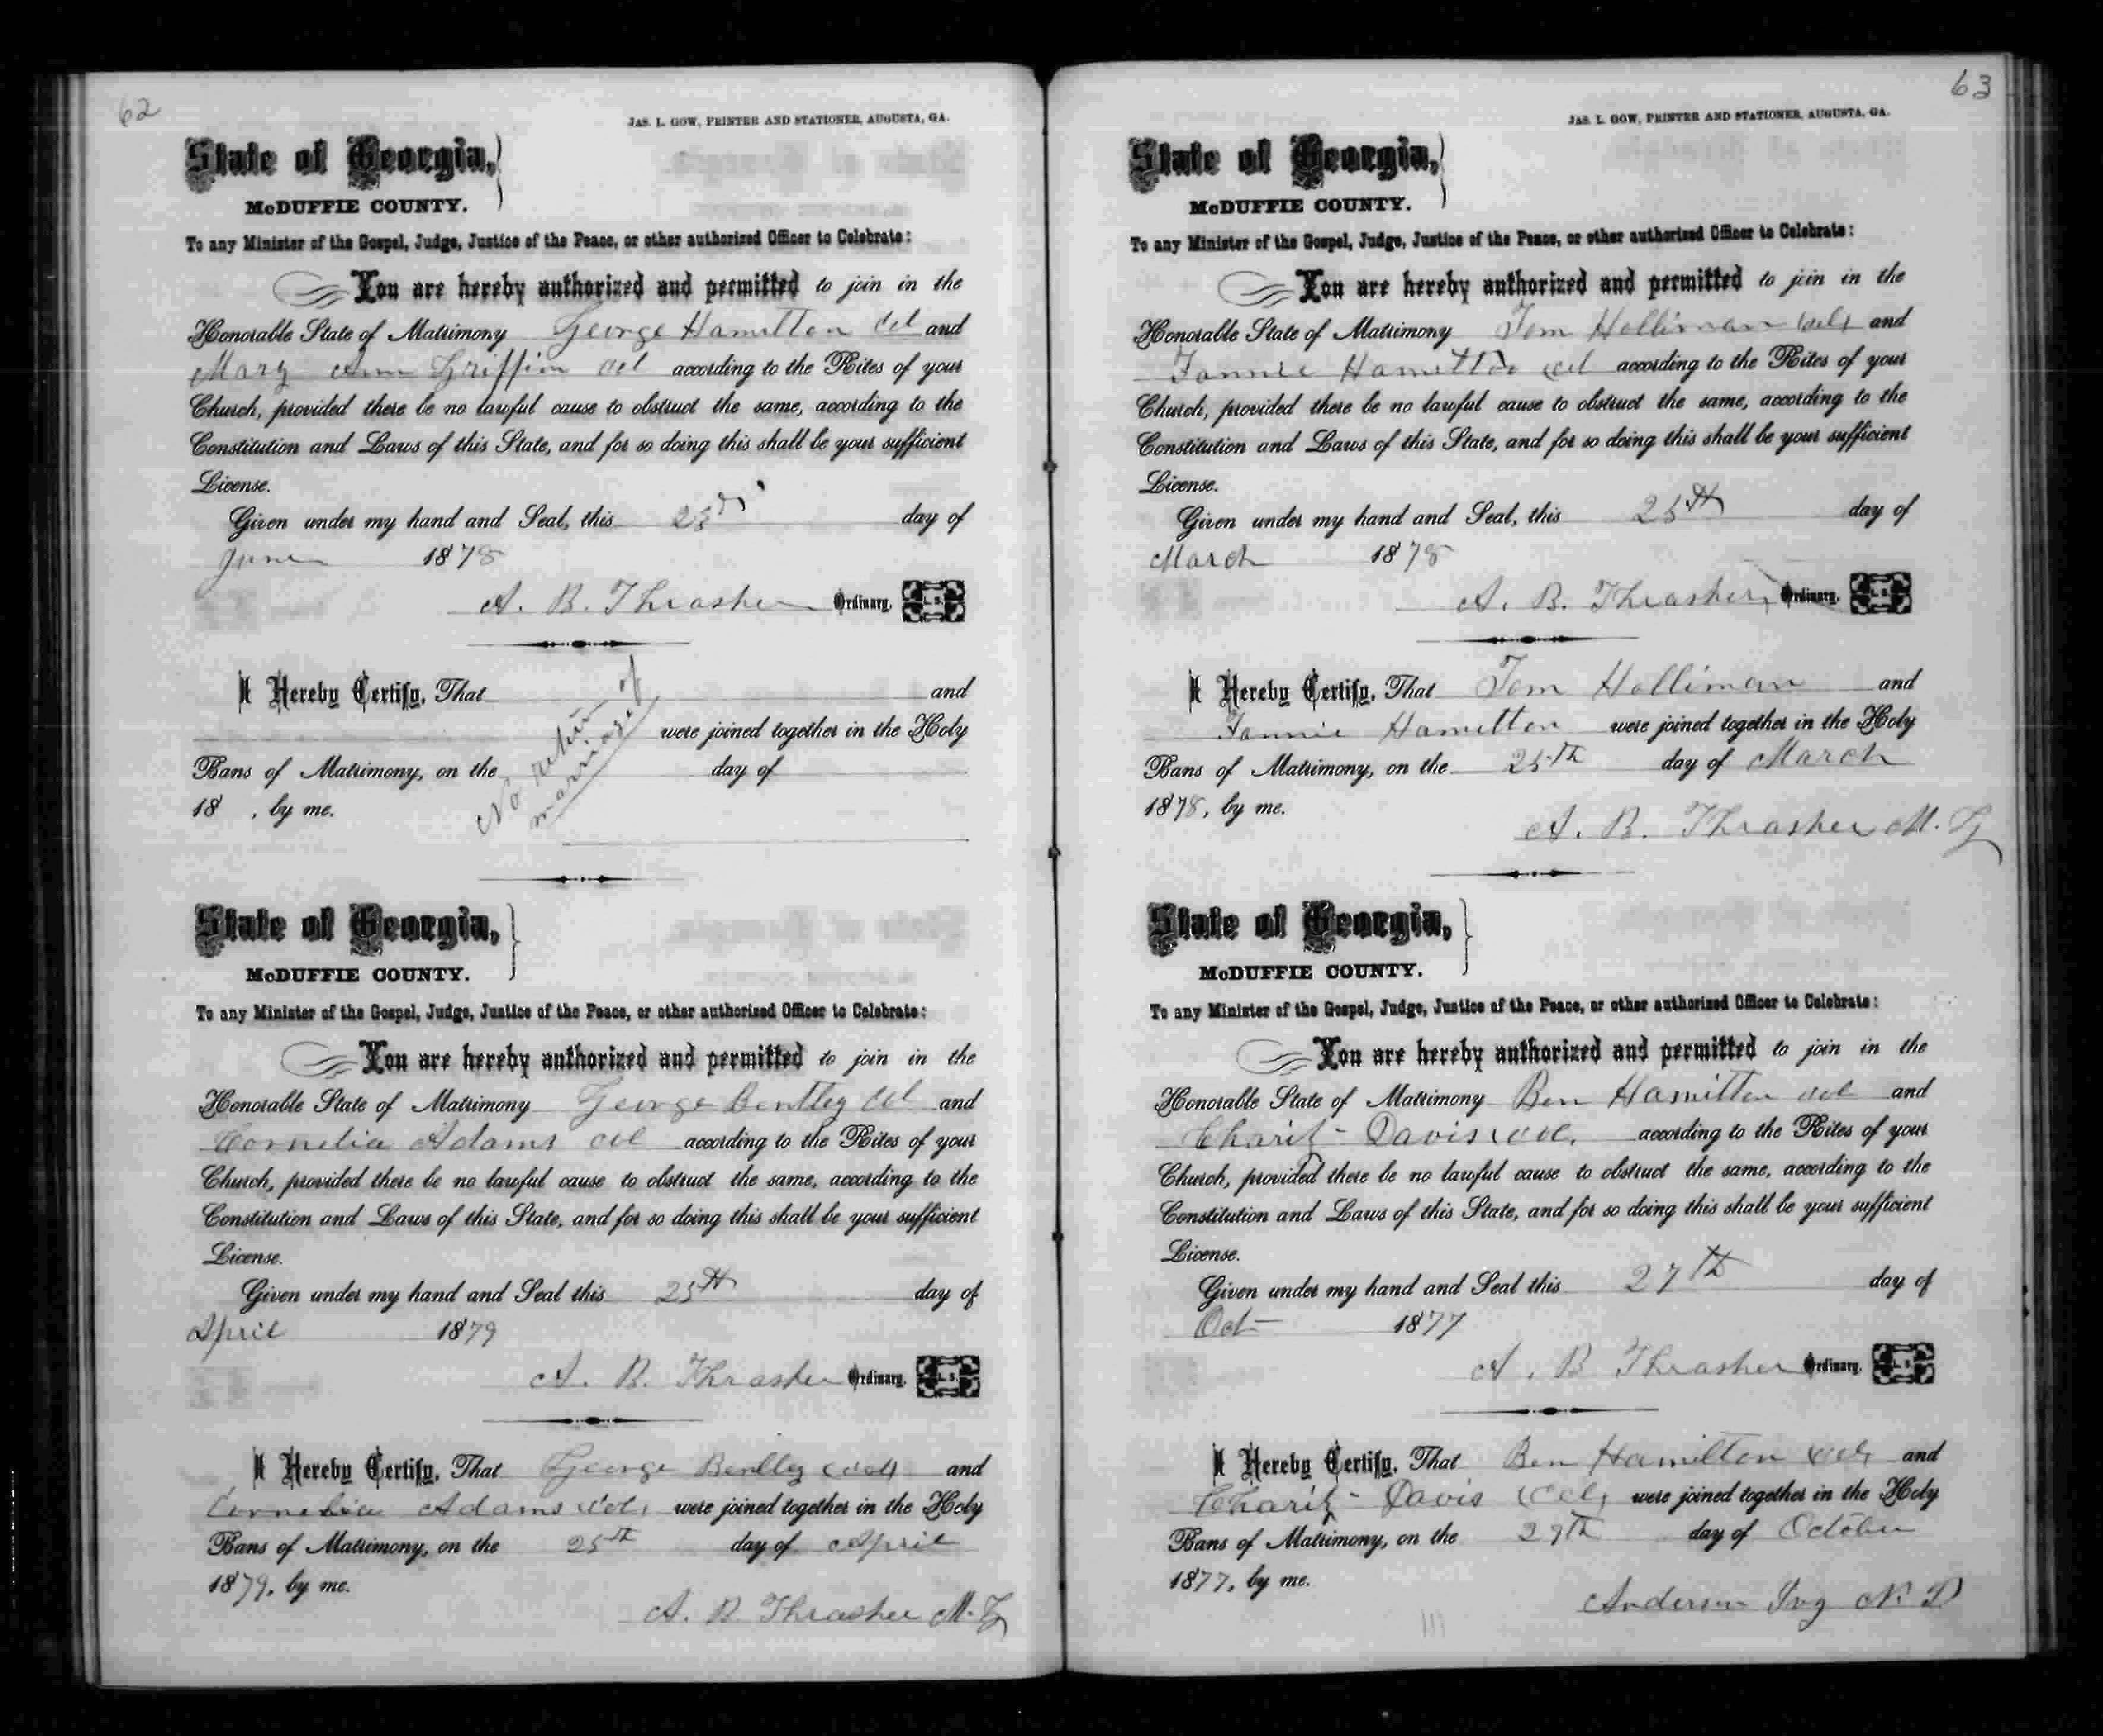 62
JAS. L. GOW, PRINTER AND STATIONER, AUGUSTA, GA.
State of Georgia,
McDUFFIE COUNTY.
To any Minister of the Gospel, Judge, Justice of the Peace, or other authorized Officer to Celebrate:
You are hereby authorized and permitted to join in the
Honorable State of Matrimony George Hamilton Col and
Mary Ann Griffin Col according to the Rites of your
Church, provided there be no lawful cause to obstruct the same, according to the
Constitution and Laws of this State, and for so doing this shall be your sufficient
License.
Given under my hand and Seal, this 25th day of
June 1878
A. B. Thrasher Ordinary. L. S.
I Hereby Certify, That and
were joined together in the Holy
Bans of Matrimony, on the day of
18 , by me.
No return of
marriage
State of Georgia,
McDUFFIE COUNTY.
To any Minister of the Gospel, Judge, Justice of the Peace, or other authorized Officer to Celebrate:
You are hereby authorized and permitted to join in the
Honorable State of Matrimony George Bentley Col and
Cornelia Adams Col according to the Rites of your
Church, provided there be no lawful cause to obstruct the same, according to the
Constitution and Laws of this State, and for so doing this shall be your sufficient
License.
Given under my hand and Seal this 25th day of
April 1879
A. B. Thrasher Ordinary. L. S.
I Hereby Certify, That George Bentley (Col) and
Cornelia Adams (Col) were joined together in the Holy
Bans of Matrimony, on the 25th day of April
1879, by me.
A. B Thrasher M. G
63
JAS. L. GOW, PRINTER AND STATIONER, AUGUSTA, GA.
State of Georgia,
McDUFFIE COUNTY.
To any Minister of the Gospel, Judge, Justice of the Peace, or other authorized Officer to Celebrate:
You are hereby authorized and permitted to join in the
Honorable State of Matrimony Tom Holliman (Col) and
Fannie Hamilton Col according to the Rites of your
Church, provided there be no lawful cause to obstruct the same, according to the
Constitution and Laws of this State, and for so doing this shall be your sufficient
License.
Given under my hand and Seal, this 25th day of
March 1878
A. B. Thrasher, Ordinary. L. S.
I Hereby Certify, That Tom Holliman and
Fannie Hamilton were joined together in the Holy
Bans of Matrimony, on the 25th day of March
1878, by me.
A. B. Thrasher M. G
State of Georgia,
McDUFFIE COUNTY.
To any Minister of the Gospel, Judge, Justice of the Peace, or other authorized Officer to Celebrate:
You are hereby authorized and permitted to join in the
Honorable State of Matrimony Ben Hamilton Col and
Charity Davis (Col. according to the Rites of your
Church, provided there be no lawful cause to obstruct the same, according to the
Constitution and Laws of this State, and for so doing this shall be your sufficient
License.
Given under my hand and Seal this 27th day of
Oct 1877
A. B Thrasher Ordinary. L. S.
I Hereby Certify, That Ben Hamilton (Col) and
Charity Davis (Col) were joined together in the Holy
Bans of Matrimony, on the 27th day of October
1877, by me.
Anderson